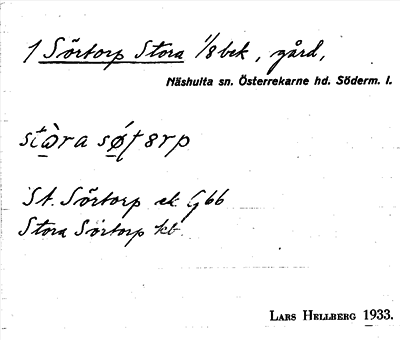 1 Sörtorp Stora 1/8 bek, gård,
Näshulta sn. Österrekarne hd. Söderm. l.
stὼra sǿʈɐrp
St. Sörtorp ek G66
Stora Sörtorp kb
LARS HELLBERG 1933.